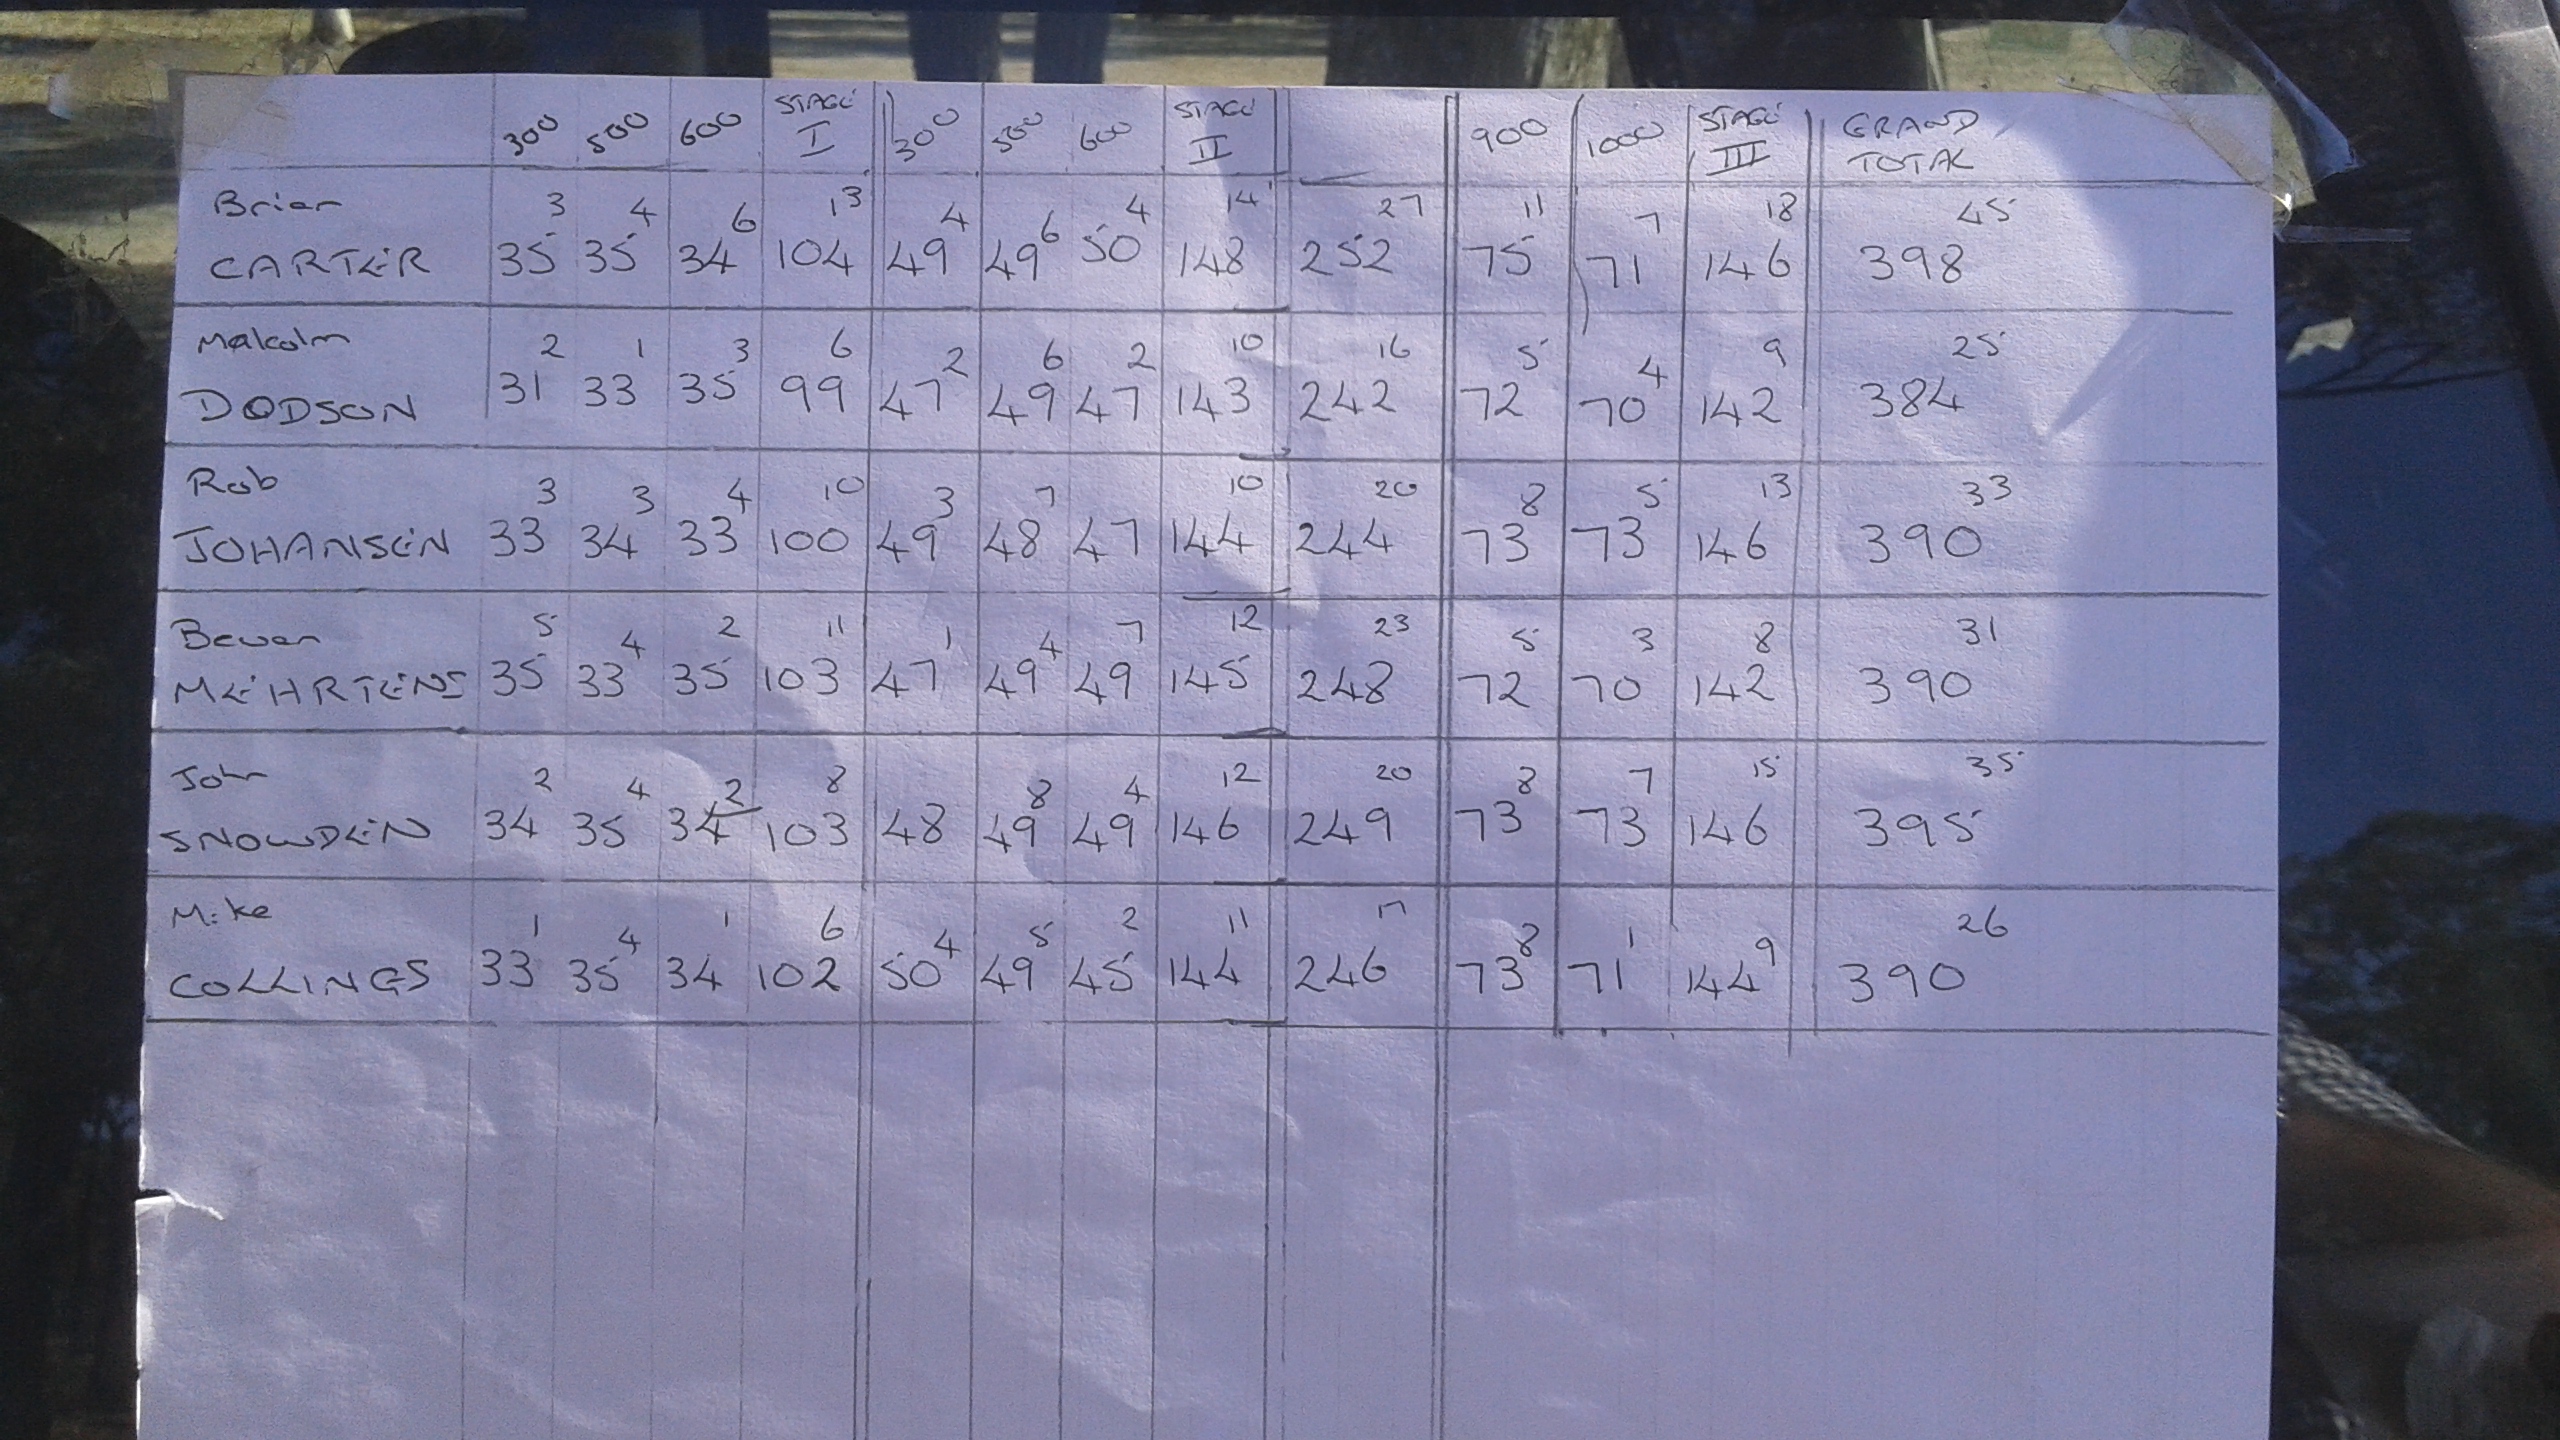 300 500 600 STAGE I 300 500 600 STAGE II 900 1000 STAGE III GRAND TOTAL
Brian 3 4 6 13 4 6 4 14 27 11 7 18 45
CARTER 35 35 34 104 49 49 50 148 252 75 71 146 398
Malcolm 2 1 3 6 2 6 2 10 16 5 4 9 25
DODSON 31 33 35 99 47 49 47 143 242 72 70 142 384
Rob 3 3 4 10 3 7 10 20 8 5 13 33
JOHANSEN 33 34 33 100 49 48 47 144 244 73 73 146 390
Bevan 5 4 2 11 1 4 7 12 23 5 3 8 31
MEHRTENS 35 33 35 103 47 49 49 145 248 72 70 142 390
John 2 4 2 8 8 4 12 20 8 7 15 35
SNOWDEN 34 35 34 103 48 49 49 146 249 73 73 146 395
Mike 1 4 1 6 4 5 2 11 17 8 1 9 26
COLLINGS 33 35 34 102 50 49 45 144 246 73 71 144 390